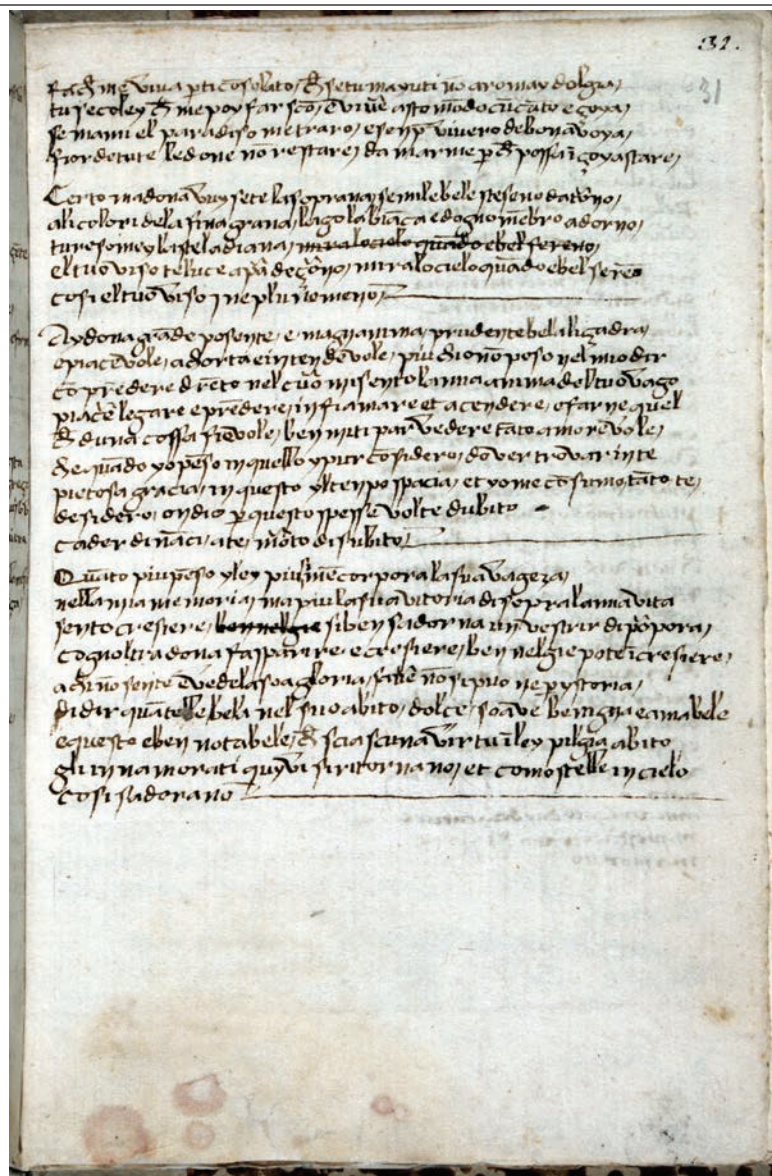 31.
31
fa ch̄ me viva p ti cōsolato / ch̄ se tu m ayuti nō aro may dolgia /
tu se coley ch̄ me poy far scō / e viu̅e a sto mōdo cū cāto e goya /
se mami el paradiso me traro / e senp̄ vivero de bona voya /
fior de tute le done nō restare / da marme p ch̄ possa ī goya stare /
Certo madona vuy sete la soprana / semile bele steseno datōno /
ali colori de la fina grana / la gola biāca e dogno mēbro adorno /
tu resomey la stela diana /
el tuo viso reluce a pā de gōno / mira lo cielo quādo e bel serēo
cosi el tuo viso ne piu ne meno
Ay dona grāde posente / e magnanima / prudente bela ligadra /
e piacēvole / acorta e intendēvole / piu dio nō poso nel mio dir
cōprēdere drēto nel cuō mi sento lanna anima del tuo vago
piacē legare e prēdere / infiamare et acendere / e farne quel
ch̄ duna cossa fiēvole / ben mi ti par vedere tāto amorēvole /
che quādo yo pēso in quello ypur cōsidero / dover trovar in te
pietosa gracia / in questo yl tenpo spacia / et yo me cōsumo tāto te /
desidero / ondio p questo spesse volte dubito
cader dināci a te / mōto di subito /
Quāto piu pēso y ley piu mē corpora la sua vageza /
nella mia memoria / ma piu la sua vitoria di sopra lanna vita
sento crescere / si ben sadorna un vestrir di pōpora /
cognoltra dona fa sparire / e cresiere / ben nelgie pote ī cresiere /
a chi nō sente e vede la soa gloria / nō si puo ne p ystoria /
di dir quāte le bela nel suo abito / dolce / soave benigna e amabele
e questo e ben notabele / ch̄ sciascuna virtu ī ley pilgia abito
gli innamorati quyvi si ritornano / et como stelle in cielo
cosi sadorano